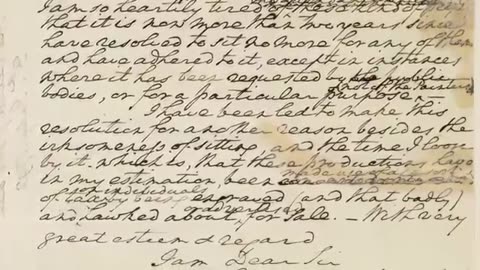 I am so heartily tired
that it is now more than two years since
have resolved to sit no more for any of them
and have adhered to it, except in instances
where it has been requested by public
(not of the Painters)
bodies, or for a particular purpose.
I have been led to make this
resolution for another reason besides the
irksomeness of sitting, and the time I loose
by it, which is, that these productions have
made use of as
in my estimation, been
or individuals
of being engraved (and that badly)
or advertised
and hawked about, for Sale. — With very
great esteem & regard
I am Dear Sir